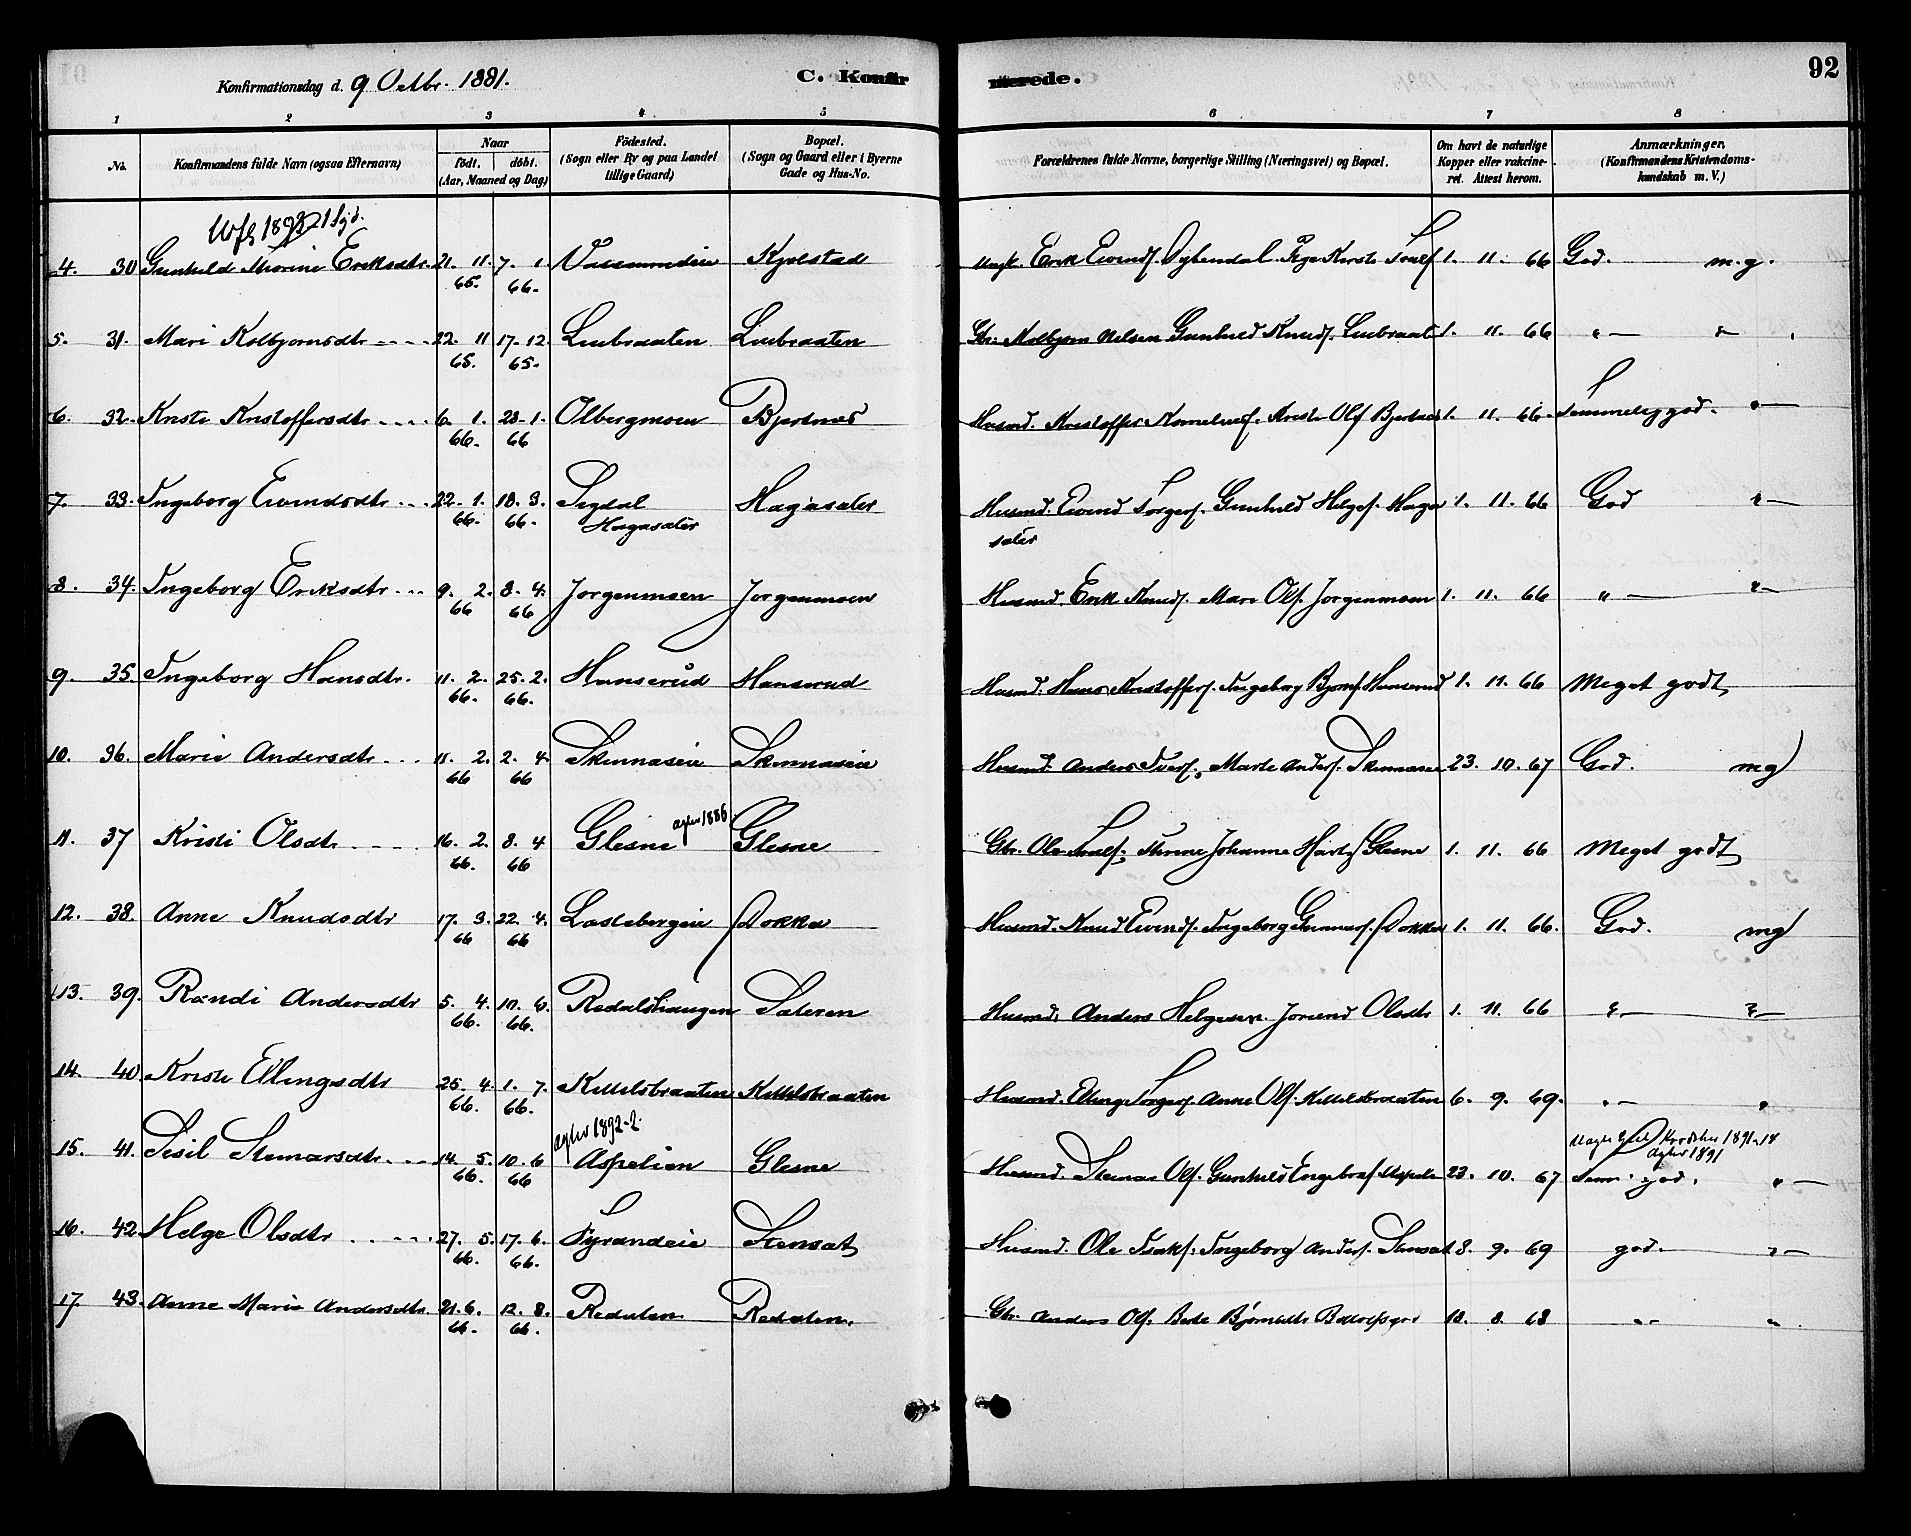 Konfirmationsdag d. 9 Octbr. 1881.
C. Konfirmerede.
92
1 2 3 4 5 6 7 8
No.
Konfirmandens fulde Navn (ogsaa Efternavn)
Naar
født. døbt.
(Aar, Maaned og Dag)
Födested.
(Sogn eller By og paa Landet
tillige Gaard)
Bopæl.
(Sogn og Gaard eller i Byerne
Gade og Hus-No.
Forældrenes fulde Navne, borgerlige Stilling (Næringsvei) og Bopæl.
Om havt de naturlige
Kopper eller vakcineret. Attest herom.
Anmærkninger.
(Konfirmandens Kristendomskundskab m. V.)
4. 30 Gunhild Marine Eriksdtr. 21. 11. 65. 7. 1. 66. Kjolstad Erik Eivends. 1. 11. 66 God. m.g.
5. 31. Mari Kolbjørnsdtr 22. 11 65. 17. 12. 65. Liubraaten Liubraaten Gbr. Kolbjørn Nelsen Gunhild Knuds. Liubraat 1. 11. 66 " — "
6. 32. Kristi Kristoffersdtr 6. 1. 66. 28. 1. 66 Olbergmoen Bjertnæs Husmd. Kristoffer Kornelius. Kristi Ols. Bjertnæs 1. 11. 66. Temmelig god. " —
7. 33. Ingeborg Eivendsdtr 22. 1. 66. 18. 3. 66. Sigdal Hagasæter Hagasæter Husmd. Eivend Torgers. Gunhild Helges. Hagasæter 1. 11. 66 God " —
8. 34. Ingeborg Eriksdtr 9. 2. 66 8. 4. 66 Jørgenmoen Jørgenmoen Husmd. Erik Knuds. Mari Ols. Jørgenmoen 1. 11. 66 " — " —
9. 35. Ingeborg Hansdtr. 11. 2. 66. 25. 2. 66. Hanserud Hanserud Husmd. Hans Kristoffers. Ingeborg Bjørns. Hanserud 1. 11. 66 Meget godt
10. 36. Marie Andersdtr 11. 2. 66 2. 4. 66 Skinnaseie Skinnaseie Husmd. Anders Ivers. Marte Anders. Skinnaseie 23. 10. 67 God. mg
11. 37 Kristi Olsdtr 16. 2. 66. 8. 4 66 Glesne 1886 Glesne Gbr. Ole Johanne Glesne 1. 11. 66 Meget godt
12. 38. Anne Knudsdtr 17. 3. 66 22. 4. 66 Lastebergeie Dokka Husmd. Knud Eivends. Ingeborg Gunnars. Dokka 1. 11. 66. God. mg
13. 39. Randi Andersdtr 5. 4. 66. 10. 6. 66. Redalshaugen Sateren Husmd. Anders Helgesen. Jorend Olsdtr 1. 11. 66 " — " —
14. 40. Kristi Ellingsdtr 25. 4. 66. 1. 7. 66. Kittilsbraaten Kittilsbraaten Husmd. Elling Torgers. Anne Ols. Kittilsbraaten 6. 9. 69. " — "
1892-2.
15. 41. Sisil Stenarsdtr 14. 5. 66. 10. 6 66 Aspelien Glesne Husmd. Stenar Ols. Gunhild Engebr. 23. 10. 67 Tem. god. " —
1891-14
1891
16. 42. Helge Olsdtr 27. 5. 66. 17. 6. 66. Tyrandeie Stensat Husmd. Ole Isaks. Ingeborg Anders. 3. 9. 69 god. " —
17. 43. Anne Marie Andersdtr. 21. 6. 66. 12. 8. 66. Redalen Redalen. Gbr. Anders Ols. Bjørnsdtr 18. 8. 68 " — "